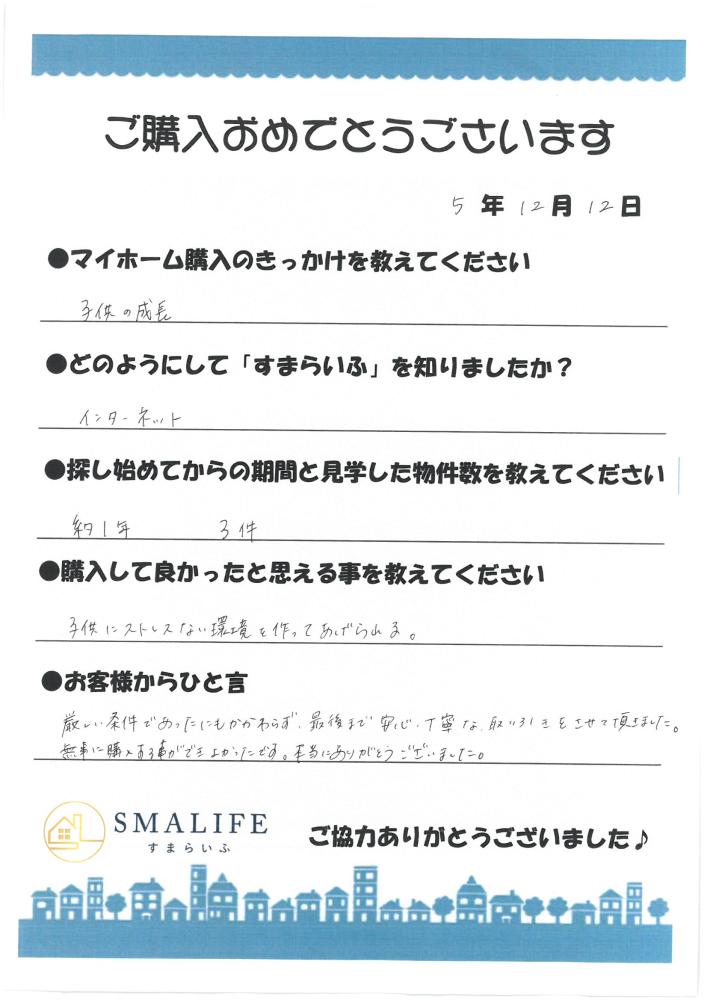 ご購入おめでとうございます
5年12月12日
●マイホーム購入のきっかけを教えてください
子供の成長
●どのようにして「すまらいふ」を知りましたか？
インターネット
●探し始めてからの期間と見学した物件数を教えてください
約1年 3件
●購入して良かったと思える事を教えてください
子供にストレスない環境を作ってあげられる。
●お客様からひと言
厳しい条件であったにもかかわらず、最後まで安心・丁寧な取り引きをさせて頂きました。
無事に購入する事ができよかったです。本当にありがとうございました。
SMALIFE
すまらいふ
ご協力ありがとうございました♪